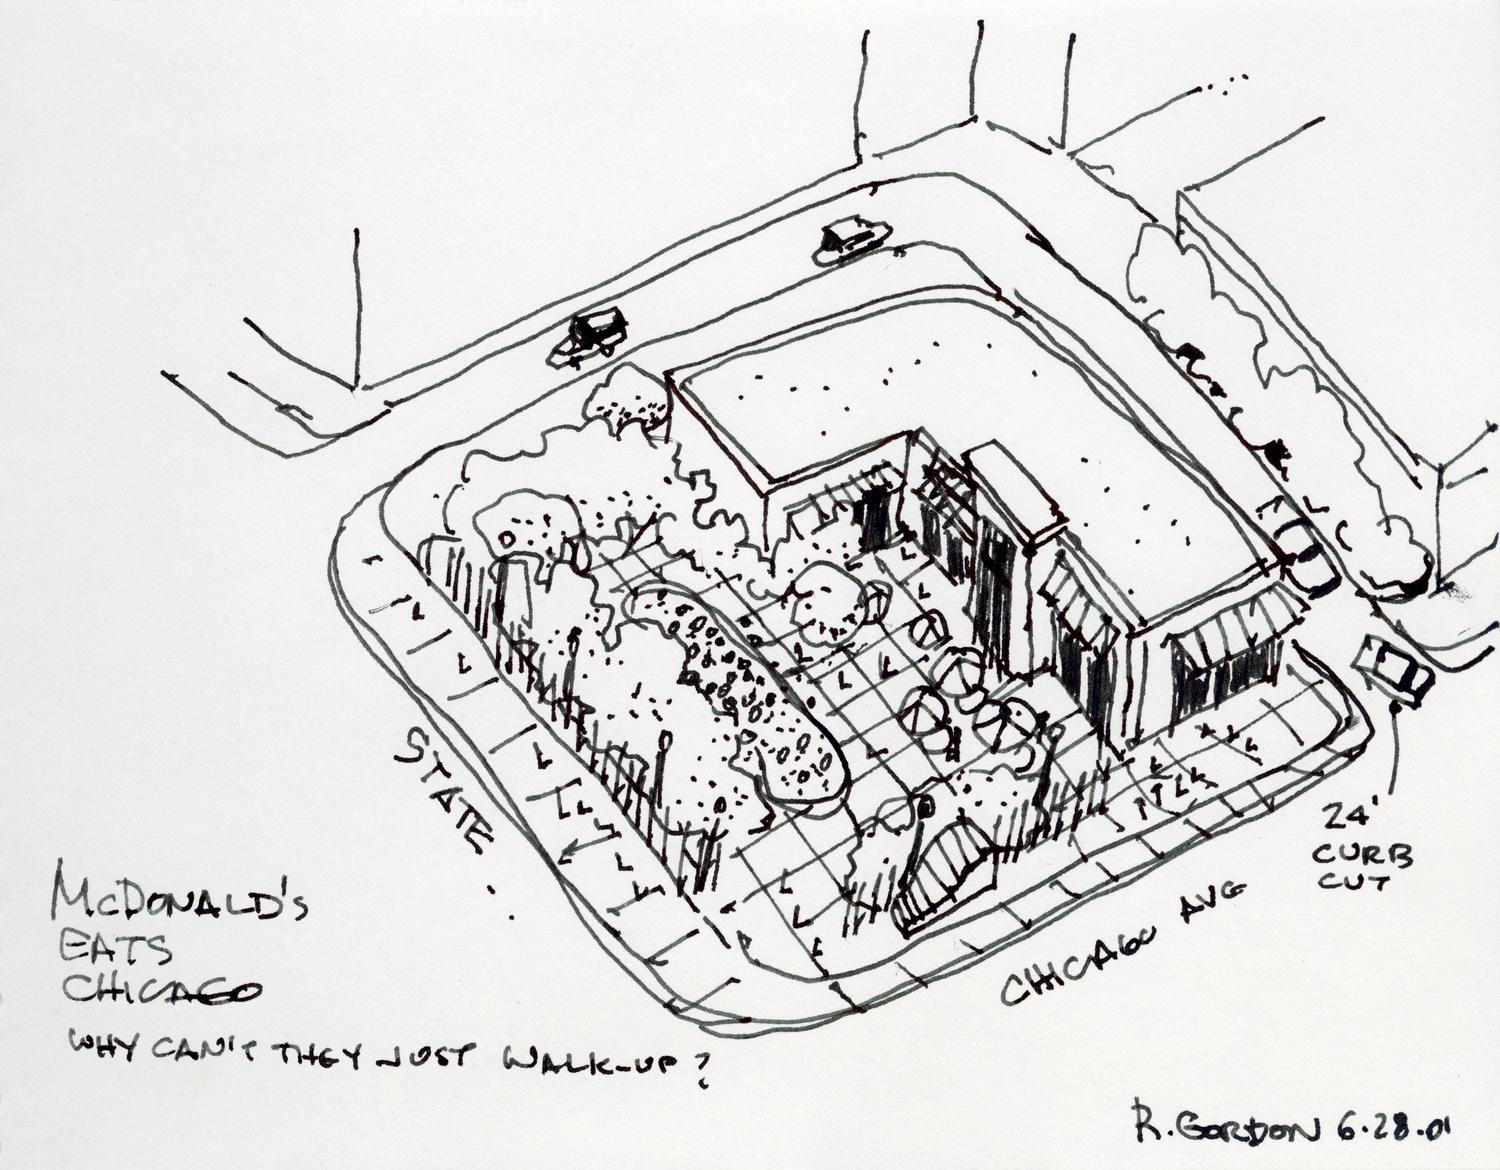 STATE
24'
CURB
CUT
CHICAGO AVE
McDONALD'S
EATS
CHICAGO
WHY CAN'T THEY JUST WALK-UP?
R. GORDON 6.28.01